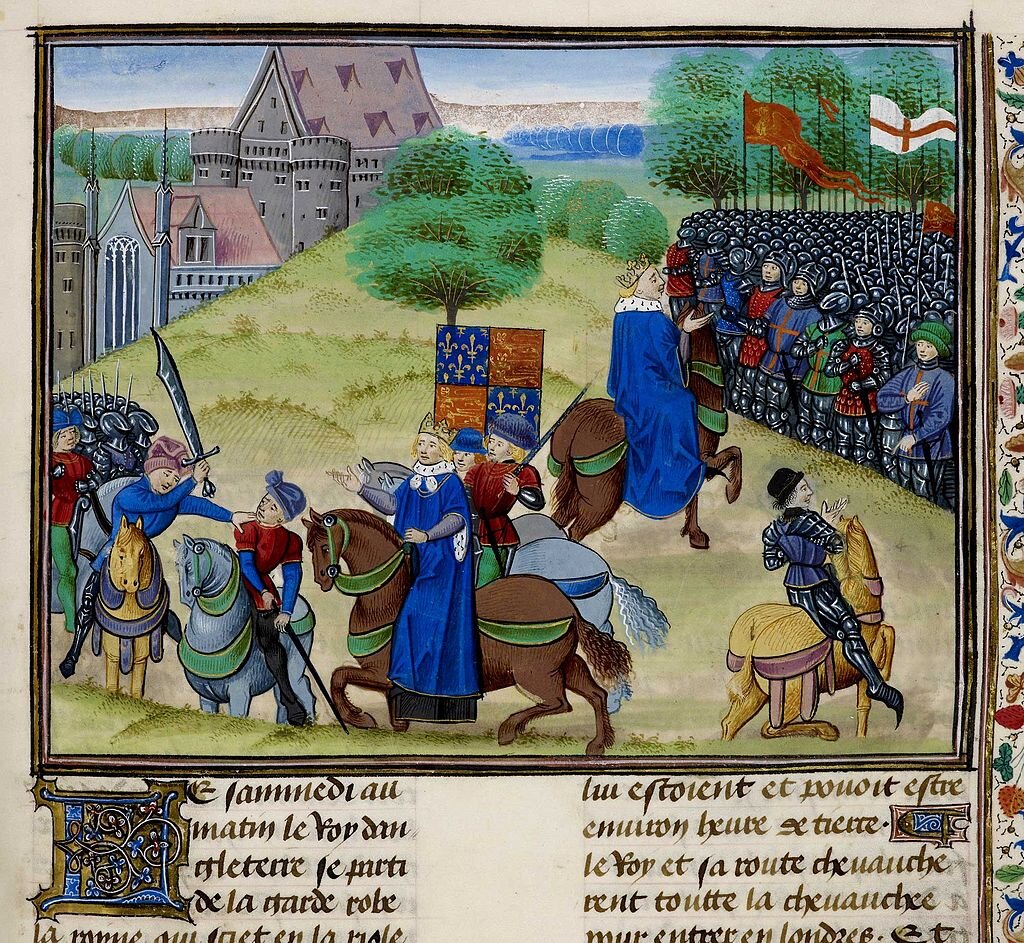 Le sammedi au
matin le Roy dan-
gleterre se parti
de la garde robe
la royne qui siet en la riole
lui estoient et pouoit estre
enuiron heure de tierce.
le Roy et sa route cheuauche
rent toutte la cheuauchee
pour entrer en londres. Et